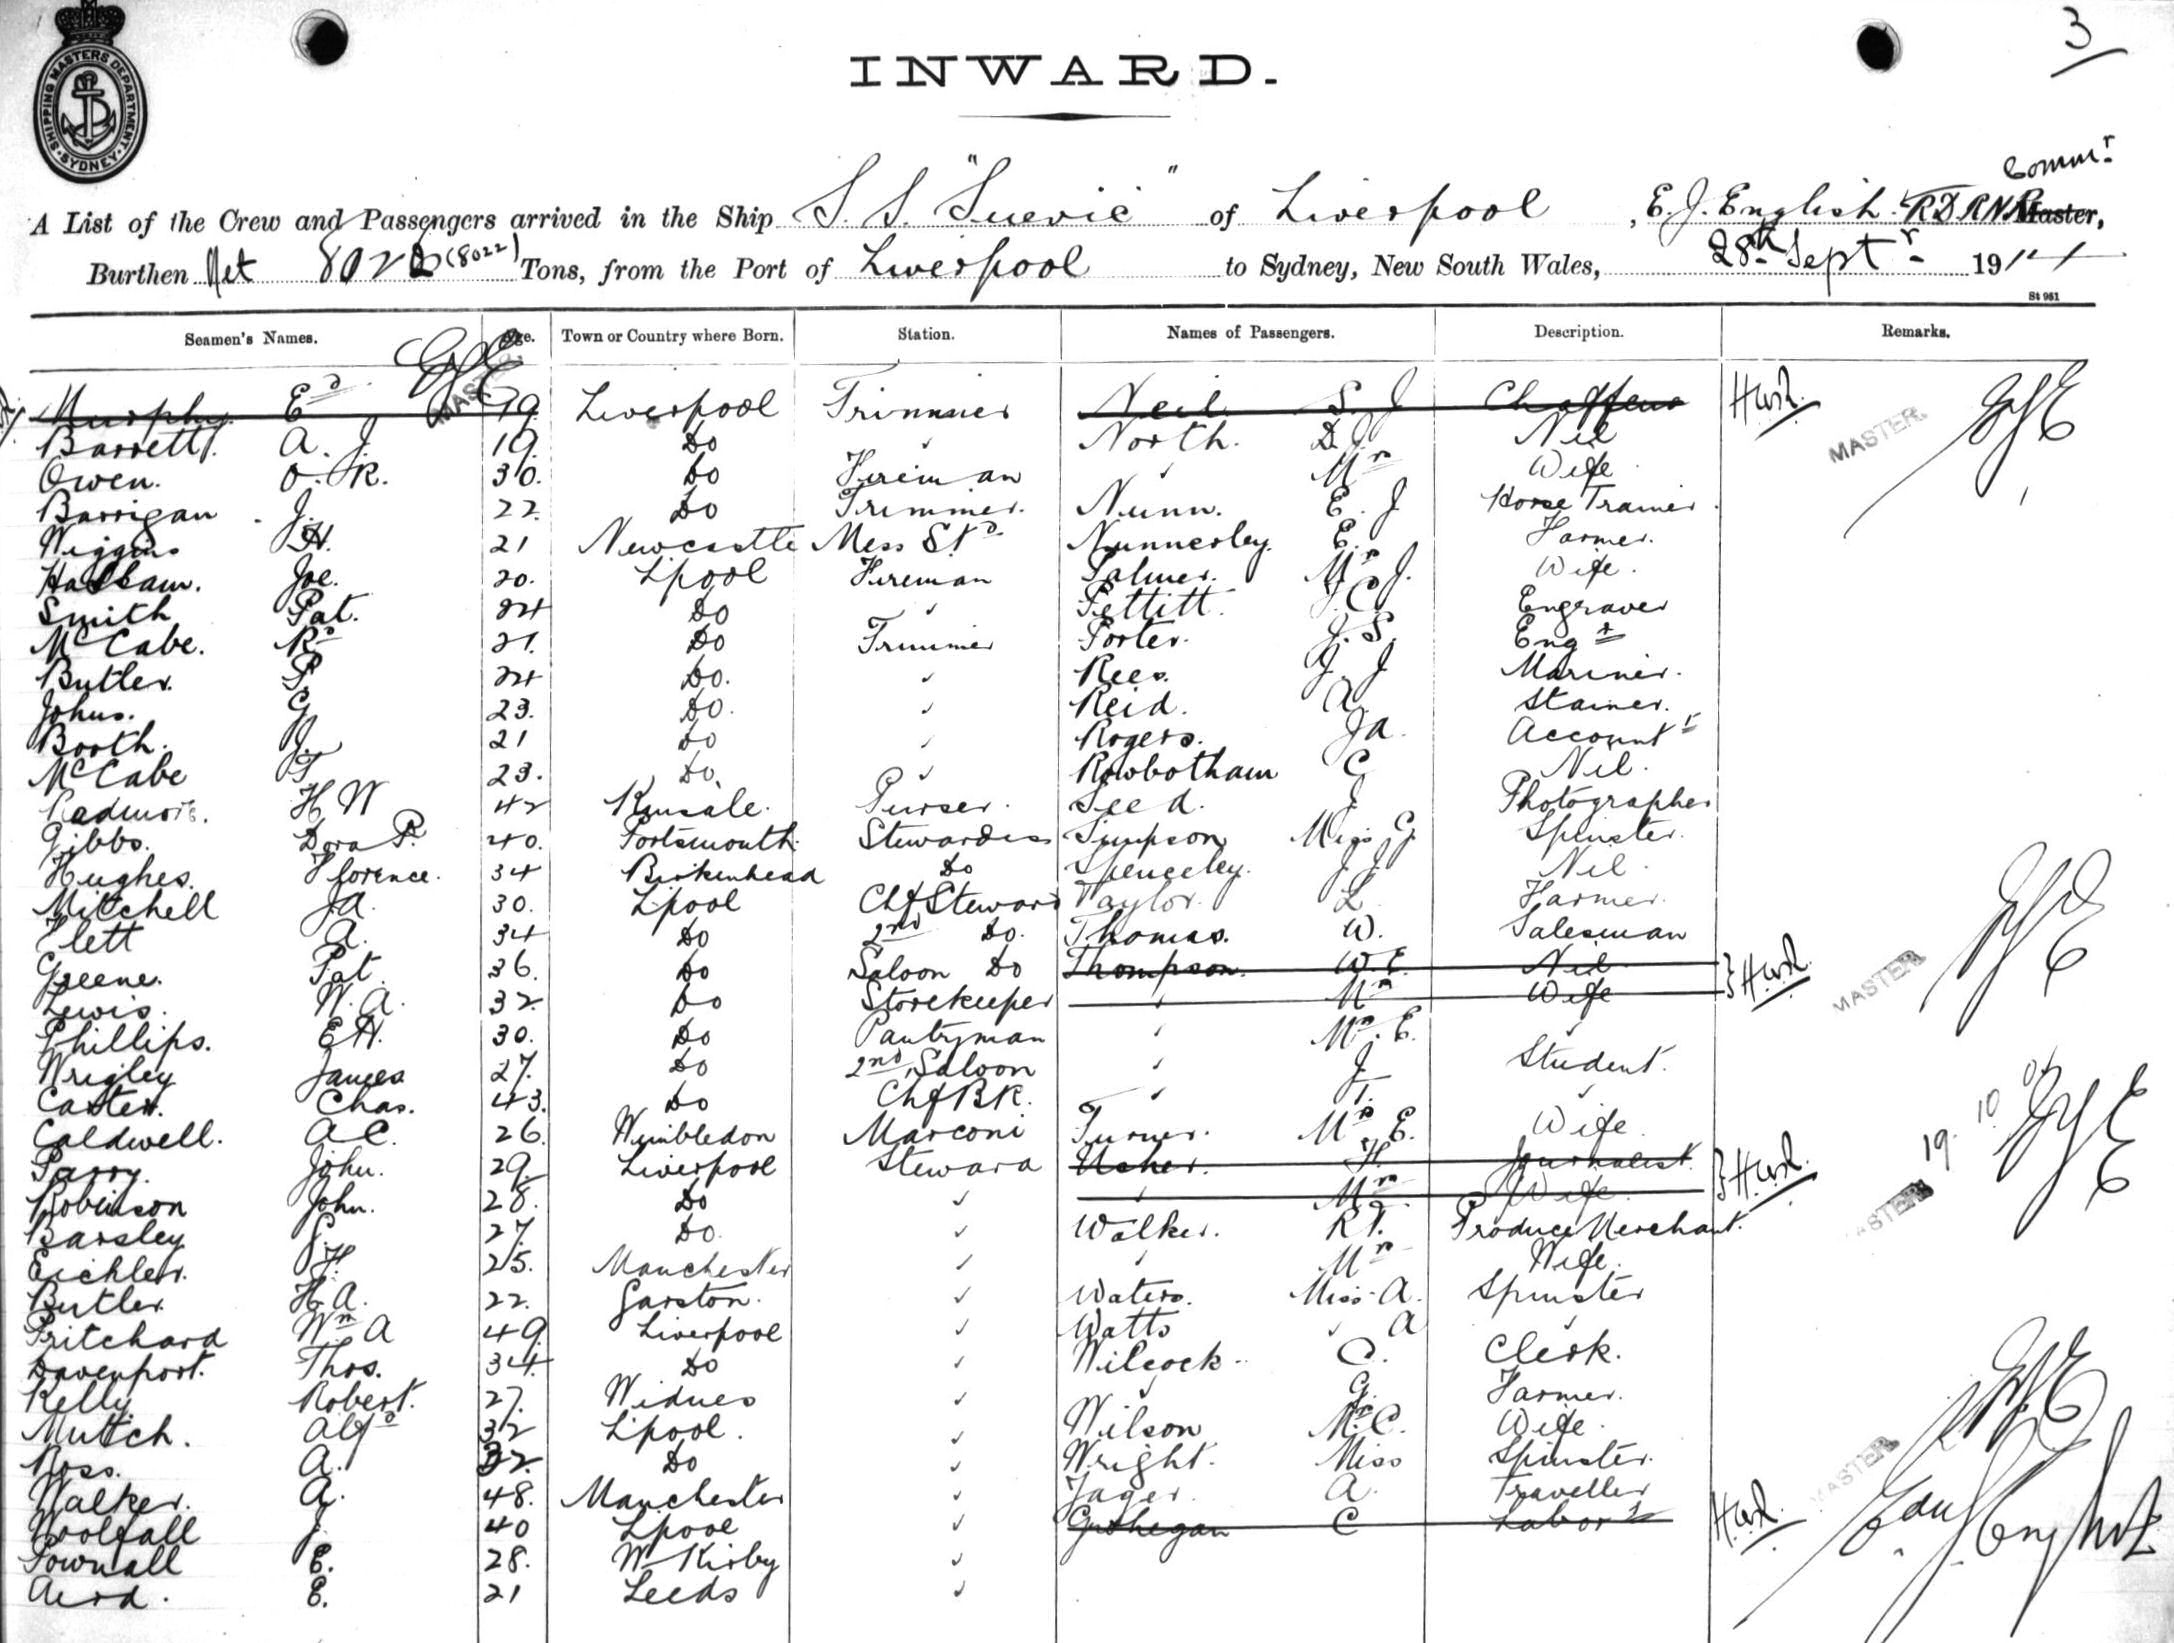 3
SHIPPING MASTERS DEPARTMENT SYDNEY
INWARD.
Comm.r
A List of the Crew and Passengers arrived in the Ship S. S. "Suevic" of Liverpool, E. J. English. R D R N R Master,
Burthen Net 8022 (8022) Tons, from the Port of Liverpool to Sydney, New South Wales, 28th Septr. 1914
St 961
Seamen's Names. Age. Town or Country where Born. Station. Names of Passengers. Description. Remarks.
Murphy Ed. 19. Liverpool Trimmer Neil S. J Chaffeur MASTER
Barrett. A. J. 19. Do ✓ North. D. J. Nil
Owen. O. R. 30. Do Fireman ✓ Mrs Wife
Barrigan. J. 22. Do Trimmer. Nunn. E. J Horse Trainer.
Wiggins H. 21 Newcastle Mess Std Nunnerley. E. Farmer.
Haslam. Joe. 20. Lpool Fireman Palmer. Mrs J. Wife.
Smith Pat. 24 Do ✓ Pettitt. J. C. Engraver
McCabe. Rd 21. Do Trimmer Porter. J. S. Engr
Butler. P. 24 Do. ✓ Rees. J. J Mariner.
Johns. G 23. Do. ✓ Reid. A. Stainer.
Booth. J. 21 Do ✓ Rogers. Ja. Accountt
McCabe T 23. Do. ✓ Rowbotham C Nil.
Radmore. H W 42 Kinsale. Purser. Seed. J Photographer
Gibbs. Dora P. 40. Portsmouth. Stewardess Simpson Miss G Spinster.
Hughes. Florence. 34 Birkenhead Do Spenceley. J J Nil.
Mitchell J A. 30. Lpool Chf Steward Taylor. L. Farmer.
Flett A. 34 Do 2nd Do. Thomas. W. Salesman
Greene. Pat. 36. Do Saloon Do Thompson. W. E. Nil
Lewis. W. A. 32. Do Storekeeper ✓ Mrs Wife MASTER
Phillips. E H. 30. Do Pantryman ✓ Mrs. E. ✓
Wrigley James 27. Do 2nd Saloon ✓ J. Student.
Carter. Chas. 43. Do Chf BK. ✓ T. ✓
Caldwell. A C. 26. Wimbledon Marconi Turner. Mrs E. Wife 19. 10. 01
Parry. John. 29. Liverpool Steward Usher. H. Journalist.
Robinson John. 28. Do ✓ ✓ Mrs Wife. MASTER
Barsley 27. Do. ✓ Walker. R T. Produce Merchant.
Eichler. H. 25. Manchester ✓ ✓ Mrs Wife.
Butler H. A. 22. Garston. ✓ Waters. Miss A. Spinster
Pritchard Wm A 49. Liverpool ✓ Watts ✓ A ✓
Davenport. Thos. 34. Do ✓ Wilcock. C. Clerk.
Kelly Robert. 27. Widnes ✓ ✓ G. Farmer.
Mutch. Alfd 32 Lpool. ✓ Wilson Mrs C. Wife.
Ross. A. 32. Do ✓ Wright. Miss Spinster. MASTER
Walker. A. 48. Manchester ✓ Jager. A. Traveller
Woolfall J. 40 Lpool ✓ C Labor
Townall E. 28. W Kirby ✓
Aird. E. 21 Leeds ✓